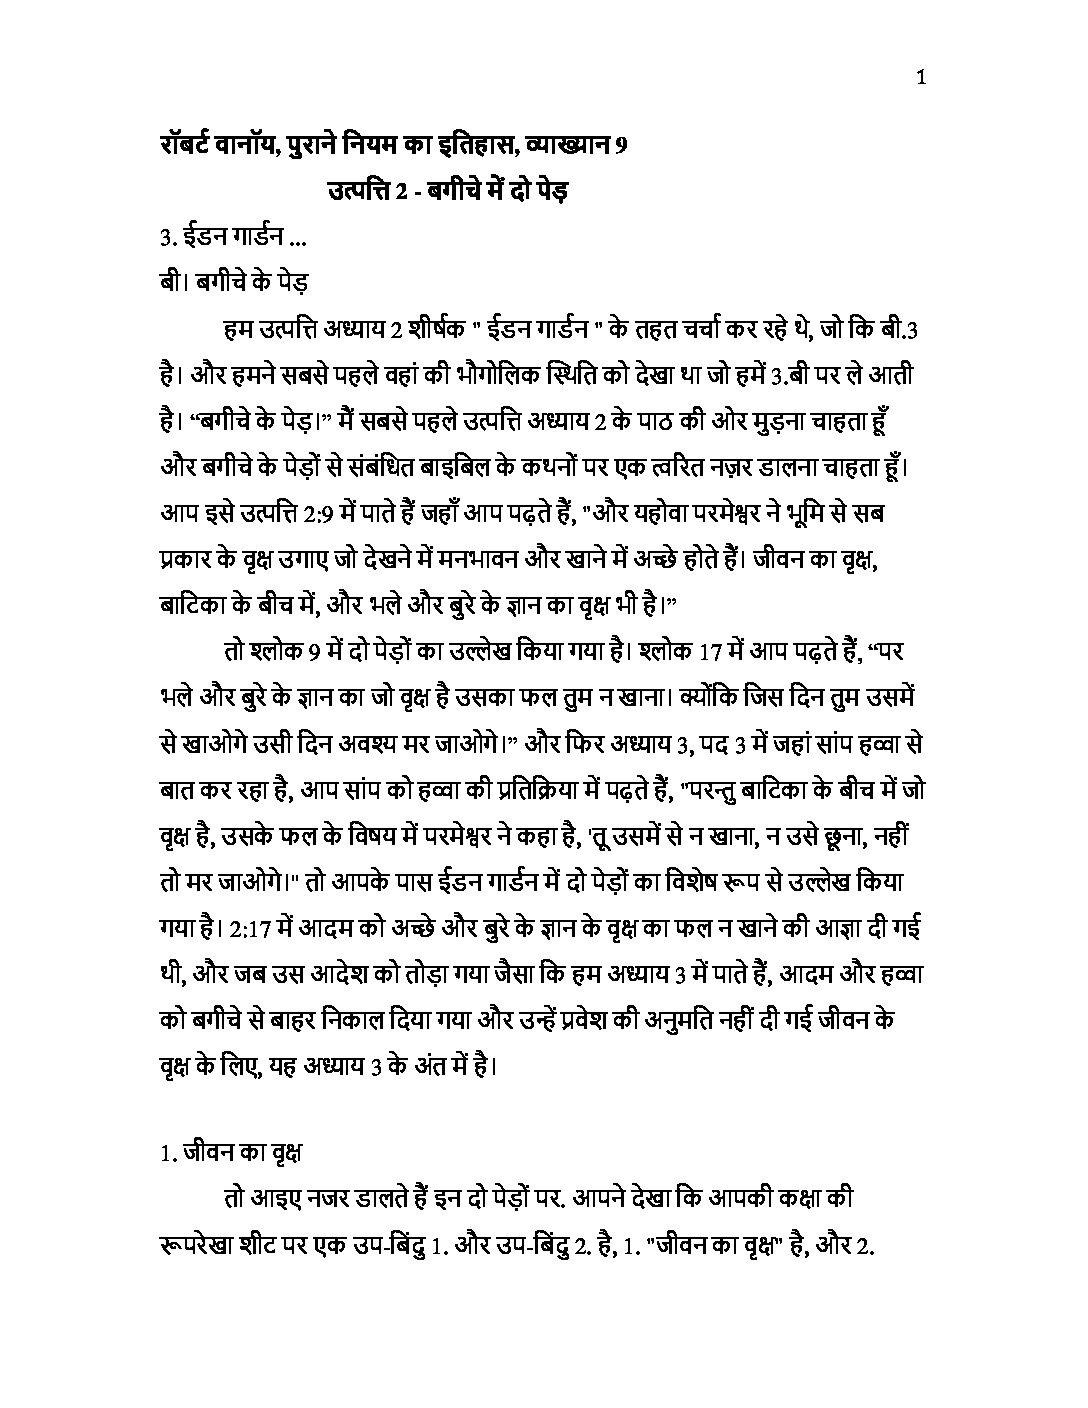 1
रॉबर्ट वानॉय, पुराने नियम का इतिहास, व्याख्यान 9
उत्पत्ति 2 - बगीचे में दो पेड़
3. ईडन गार्डन ...
बी। बगीचे के पेड़
हम उत्पत्ति अध्याय 2 शीर्षक " ईडन गार्डन " के तहत चर्चा कर रहे थे, जो कि बी.3
है। और हमने सबसे पहले वहां की भौगोलिक स्थिति को देखा था जो हमें 3.बी पर ले आती
है। “बगीचे के पेड़।” मैं सबसे पहले उत्पत्ति अध्याय 2 के पाठ की ओर मुड़ना चाहता हूँ
और बगीचे के पेड़ों से संबंधित बाइबिल के कथनों पर एक त्वरित नज़र डालना चाहता हूँ।
आप इसे उत्पत्ति 2:9 में पाते हैं जहाँ आप पढ़ते हैं, "और यहोवा परमेश्वर ने भूमि से सब
प्रकार के वृक्ष उगाए जो देखने में मनभावन और खाने में अच्छे होते हैं। जीवन का वृक्ष,
बाटिका के बीच में, और भले और बुरे के ज्ञान का वृक्ष भी है।”
तो श्लोक 9 में दो पेड़ों का उल्लेख किया गया है। श्लोक 17 में आप पढ़ते हैं, “पर
भले और बुरे के ज्ञान का जो वृक्ष है उसका फल तुम न खाना। क्योंकि जिस दिन तुम उसमें
से खाओगे उसी दिन अवश्य मर जाओगे।” और फिर अध्याय 3, पद 3 में जहां सांप हव्वा से
बात कर रहा है, आप सांप को हव्वा की प्रतिक्रिया में पढ़ते हैं, "परन्तु बाटिका के बीच में जो
वृक्ष है, उसके फल के विषय में परमेश्वर ने कहा है, 'तू उसमें से न खाना, न उसे छूना, नहीं
तो मर जाओगे।" तो आपके पास ईडन गार्डन में दो पेड़ों का विशेष रूप से उल्लेख किया
गया है। 2:17 में आदम को अच्छे और बुरे के ज्ञान के वृक्ष का फल न खाने की आज्ञा दी गई
थी, और जब उस आदेश को तोड़ा गया जैसा कि हम अध्याय 3 में पाते हैं, आदम और हव्वा
को बगीचे से बाहर निकाल दिया गया और उन्हें प्रवेश की अनुमति नहीं दी गई जीवन के
वृक्ष के लिए, यह अध्याय 3 के अंत में है।
1. जीवन का वृक्ष
तो आइए नजर डालते हैं इन दो पेड़ों पर. आपने देखा कि आपकी कक्षा की
रूपरेखा शीट पर एक उप-बिंदु 1. और उप-बिंदु 2. है, 1. "जीवन का वृक्ष" है, और 2.